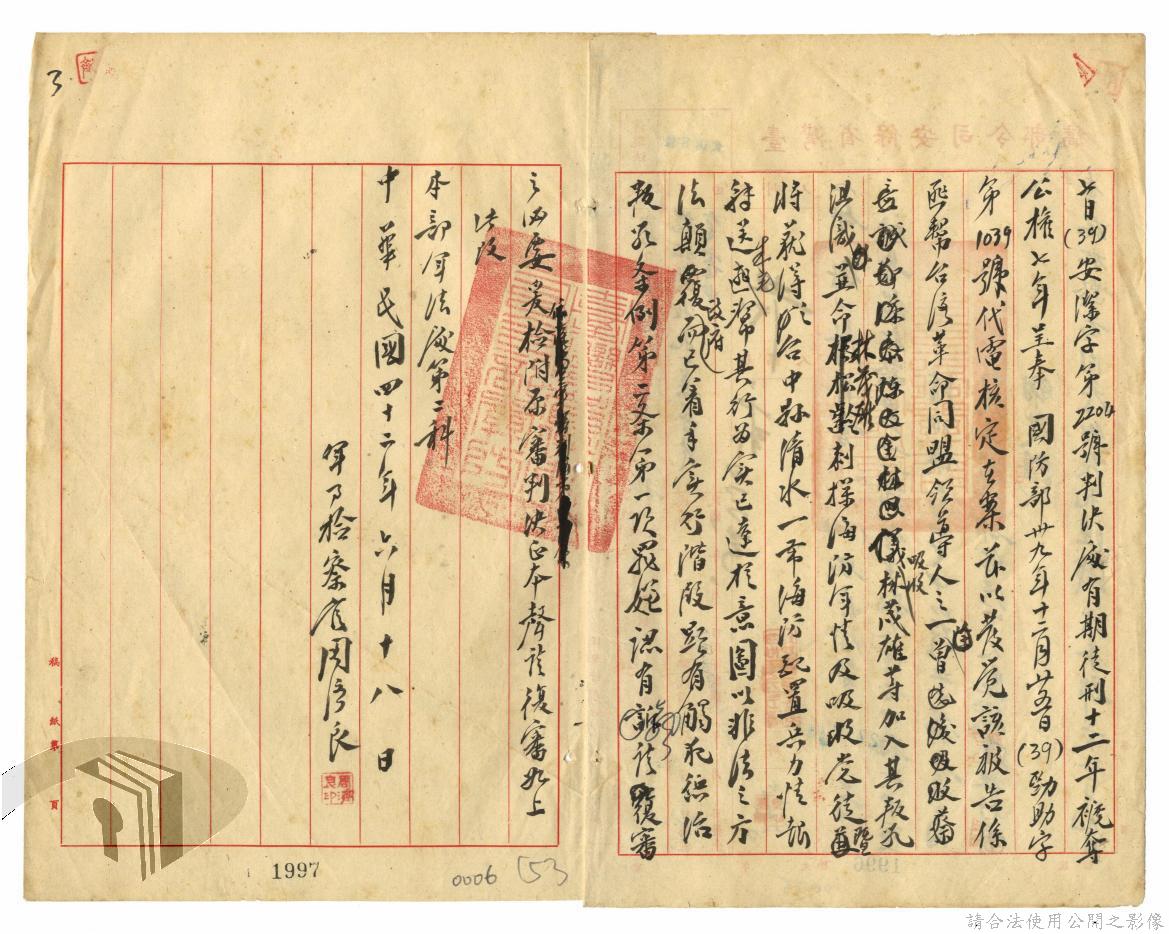 日(39)安潔字第2204號判決處有期徒刑十二年褫奪
公權七年呈奉 國防部卅九年十二月廿五日(39)勁助字
第1039號代電核定在案茲以發覺該被告係
匪幫台灣革命同盟領導人之一曾 吸收
林茂雄等加入其叛亂
組織並命 刺探海防軍情及吸收黨徒
林茂雄
將獲得於台中縣清水一帶海防配置兵力情報
轉送匪幫其行為實已達於意圖以非法之方
法顛覆政府而已着手實行階段顯有觸犯懲治
叛亂條例第二條第一項罪嫌認有 該 復審
之必要爰檢附原審判決正本聲請復審如上
此致
本部軍法處第二科
軍事檢察官周清良
中華民國四十二年六月十八日
稿紙第 頁
3
1997
0006
53
請合法使用公開之影像